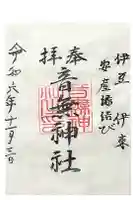 伊豆 伊東
安産 縁結び
奉拝
音無神社
令和六年十一月三日